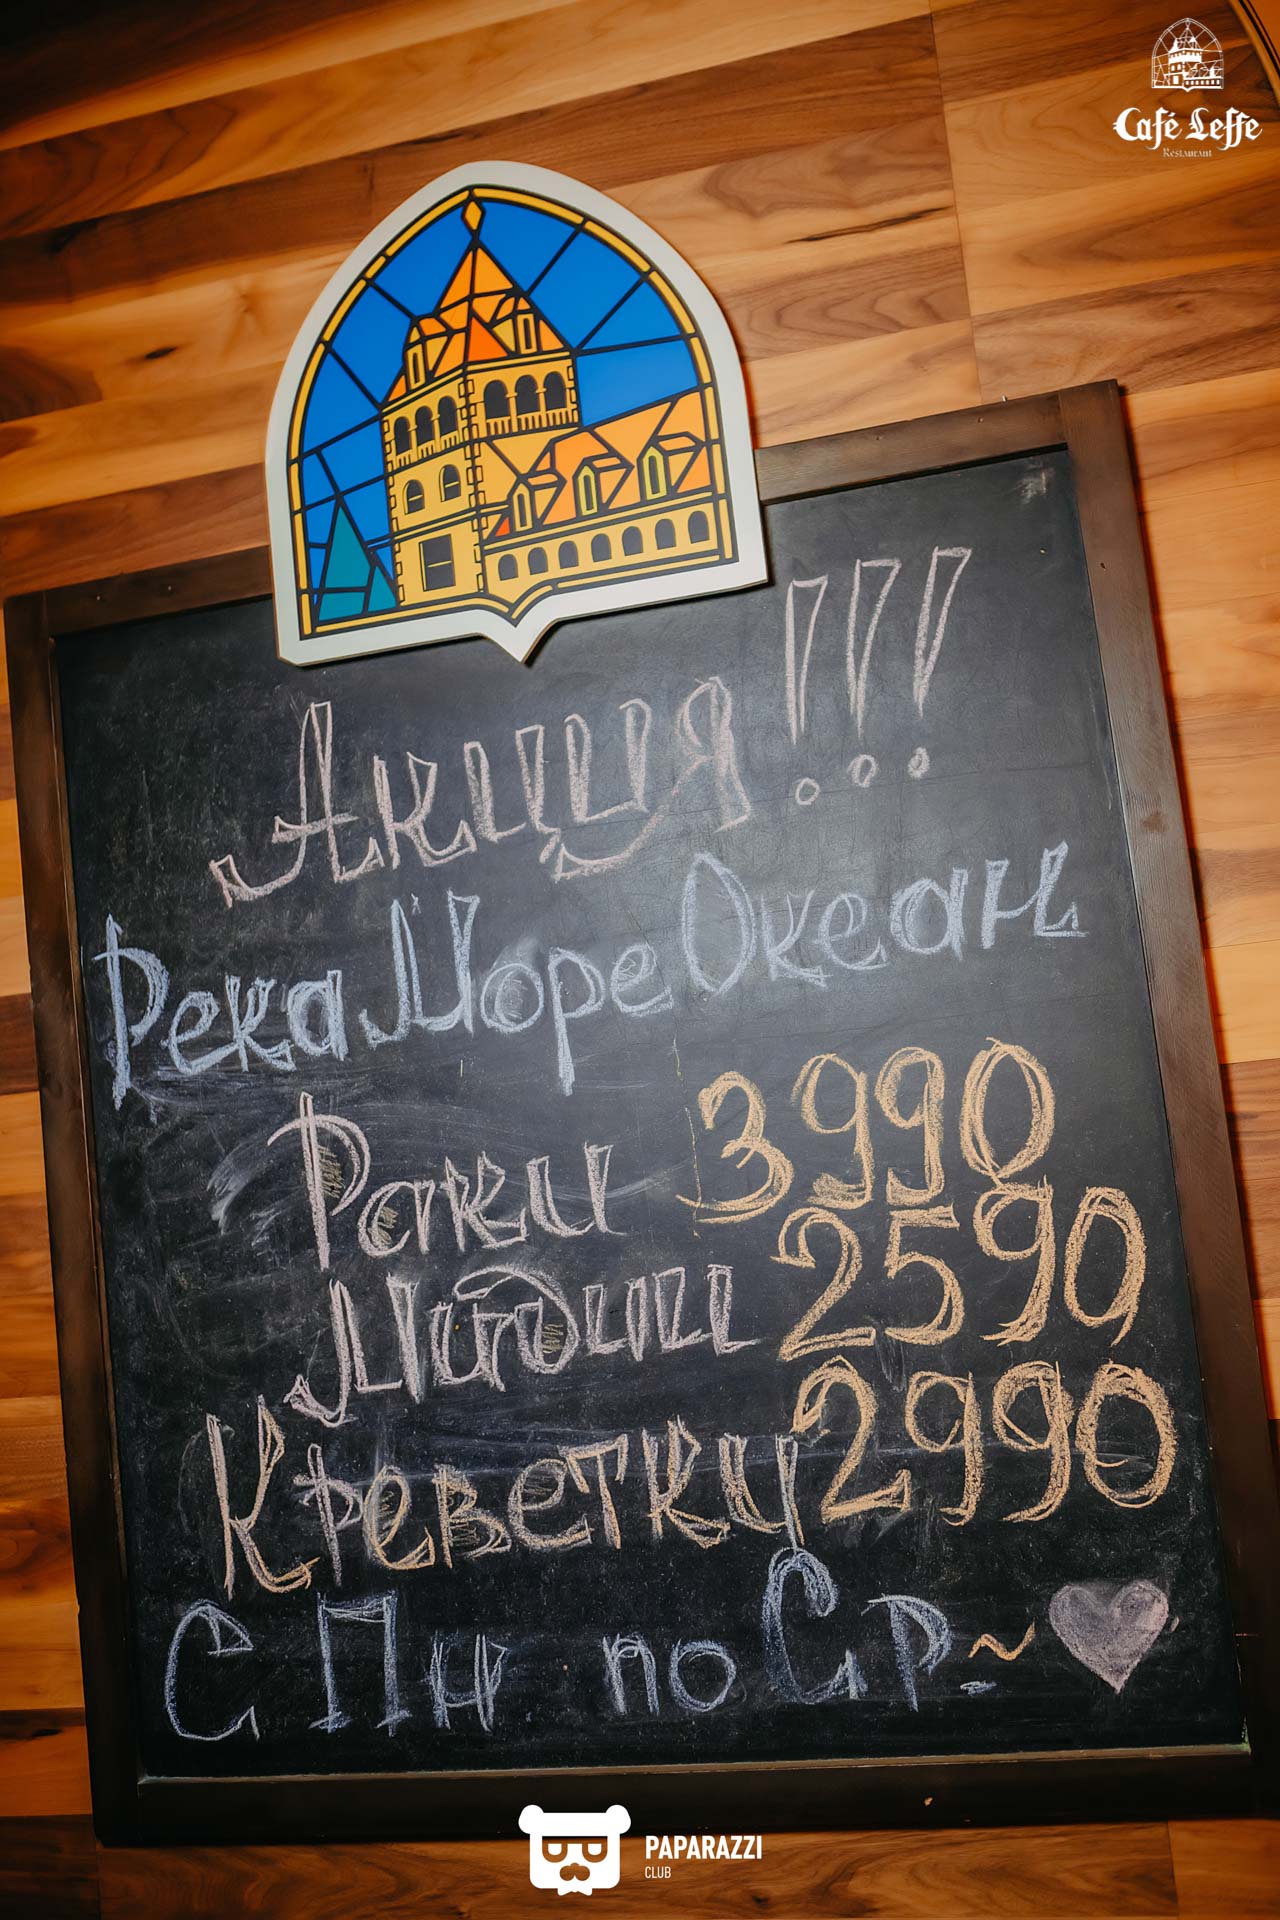 Café Leffe
Restaurant
Акция!!!
Река Море Океан
Раки 3990
Мидии 2590
Креветки 2990
С Пн по Ср. ~
PAPARAZZI
CLUB